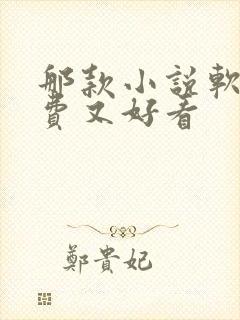 那款小說軟
費又好看
鄭貴妃